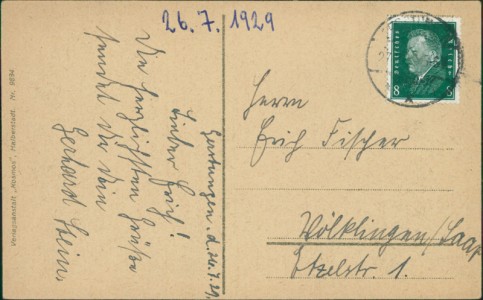 26. 7. 1929
d. 26.7.29.
Lieber Erich!
Die herzlichsten Grüße
sendet dir dein
Gerhard Stein
Herrn
Erich Fischer
Völklingen/Saar
Etzelstr. 1.
Deutsches Reich
8 8
Verlagsanstalt „Kosmos", Halberstadt. Nr. 9894